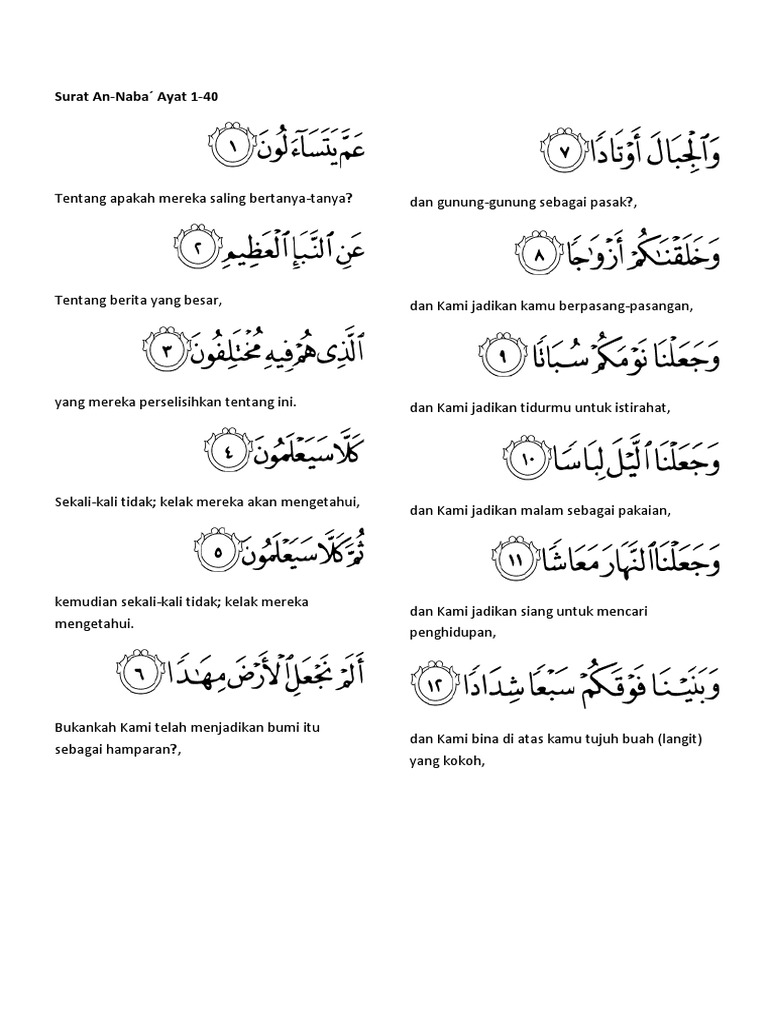 Surat An-Naba´ Ayat 1-40
عَمَّ يَتَسَآءَلُونَ ١
Tentang apakah mereka saling bertanya-tanya?
عَنِ ٱلنَّبَإِ ٱلْعَظِيمِ ٢
Tentang berita yang besar,
ٱلَّذِى هُمْ فِيهِ مُخْتَلِفُونَ ٣
yang mereka perselisihkan tentang ini.
كَلَّا سَيَعْلَمُونَ ٤
Sekali-kali tidak; kelak mereka akan mengetahui,
ثُمَّ كَلَّا سَيَعْلَمُونَ ٥
kemudian sekali-kali tidak; kelak mereka
mengetahui.
أَلَمْ نَجْعَلِ ٱلْأَرْضَ مِهَٰدًا ٦
Bukankah Kami telah menjadikan bumi itu
sebagai hamparan?,
وَٱلْجِبَالَ أَوْتَادًا ٧
dan gunung-gunung sebagai pasak?,
وَخَلَقْنَٰكُمْ أَزْوَٰجًا ٨
dan Kami jadikan kamu berpasang-pasangan,
وَجَعَلْنَا نَوْمَكُمْ سُبَاتًا ٩
dan Kami jadikan tidurmu untuk istirahat,
وَجَعَلْنَا ٱلَّيْلَ لِبَاسًا ١٠
dan Kami jadikan malam sebagai pakaian,
وَجَعَلْنَا ٱلنَّهَارَ مَعَاشًا ١١
dan Kami jadikan siang untuk mencari
penghidupan,
وَبَنَيْنَا فَوْقَكُمْ سَبْعًا شِدَادًا ١٢
dan Kami bina di atas kamu tujuh buah (langit)
yang kokoh,